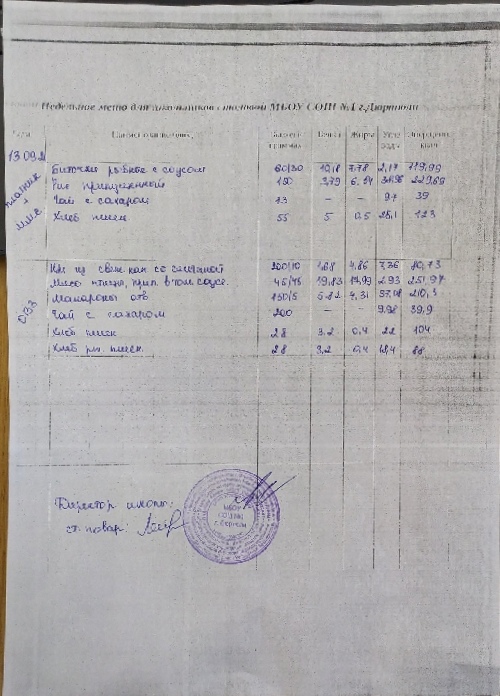 Недельное меню для школьников столовой МБОУ СОШ №1 г.Дюртюли
Дата Наименование Выход в граммах Белки Жиры Угле воды Энергоцен ккал
13.09.2
платник + ммс
Биточки рыбные с соусом 60/30 10,8 7.78 2,17 119,99
Рис припущенный 150 3,79 6.54 229,69
Чай с сахаром 13 – – 9.7 39
Хлеб пшен. 55 5 0.5 25,1 123
ОВЗ
Щи из свеж кап со сметаной 200/10 1.68 4.86 7,36 80,73
Мясо птицы, прип. в том. соусе. 45/45 19,83 14,99 2.93 251,97
Макароны отв 150/5 5.82 4,31 37,08 210,3
Чай с сахаром 200 – – 9.98 39,9
Хлеб пшен 28 3.2 0,4 22 104
Хлеб рж. пшен. 28 3,2 0,4 18,4 88
Директор школы:
ст. повар: